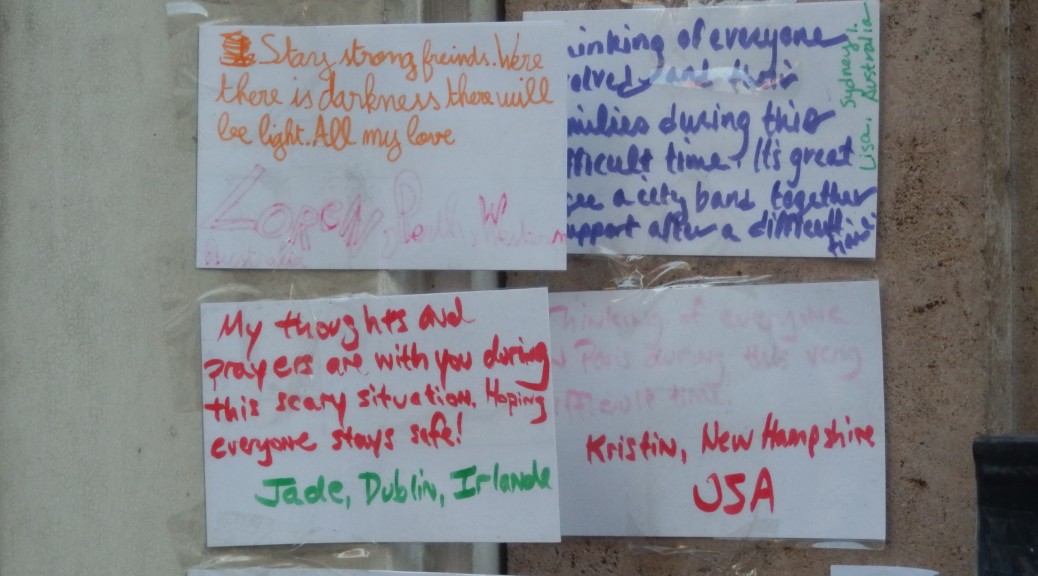 Stay strong freinds. Were
there is darkness there will
be light. All my love
Loren, Perth, Western
Australia
inking of everyone
olved and their
milies during this
fficult time. It's great
see a city band together
upport after a difficult
time
Lisa, Sydney,
Australia
My thoughts and
prayers are with you during
this scary situation. Hoping
everyone stays safe!
Jade, Dublin, Irlande
Thinking of everyone
Paris during this very
ifficult time.
Kristin, New Hampshire
USA